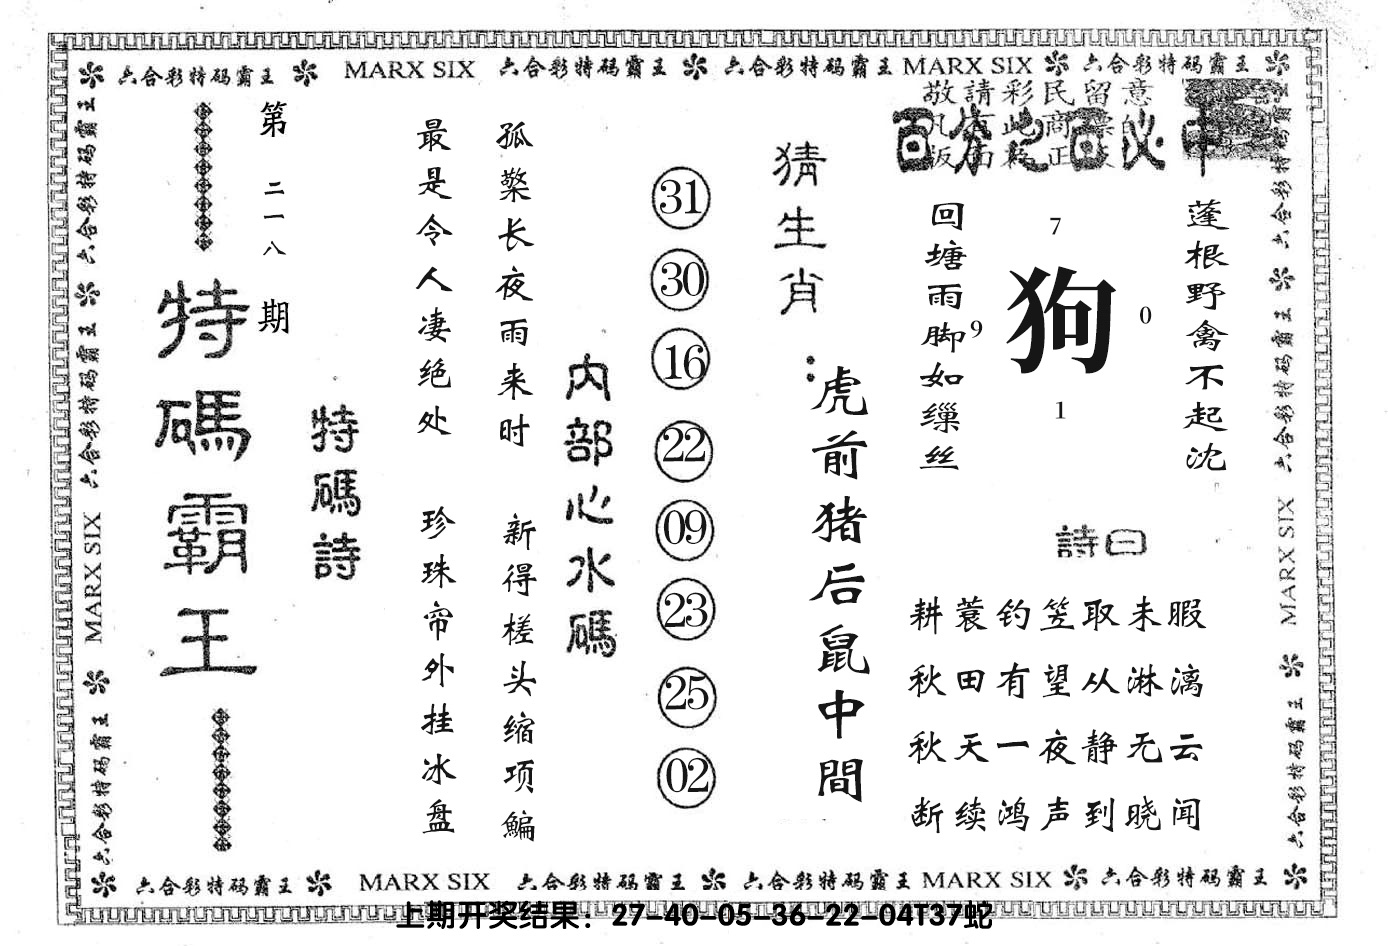 六合彩特码霸王 MARX SIX 六合彩特码霸王 六合彩特码霸王 MARX SIX 六合彩特码霸王
敬請彩民留意
百分之百必中
蓬根野禽不起沈
回塘雨脚如缫丝
7
狗
9
0
1
詩曰
耕蓑钓笠取未暇
秋田有望从淋漓
秋天一夜静无云
断续鸿声到晓闻
猜生肖:
虎前猪后鼠中間
31
30
16
22
09
23
25
02
内部心水碼
孤檠长夜雨来时
新得槎头缩项鳊
最是令人凄绝处
珍珠帘外挂冰盘
特碼詩
第二一八期
特碼霸王
六合彩特码霸王 六合彩特码霸王 MARX SIX 六合彩特码霸王
六合彩特码霸王 六合彩特码霸王 MARX SIX 六合彩特码霸王
六合彩特码霸王 MARX SIX 六合彩特码霸王 六合彩特码霸王 MARX SIX 六合彩特码霸王
上期开奖结果：27-40-05-36-22-04T37蛇